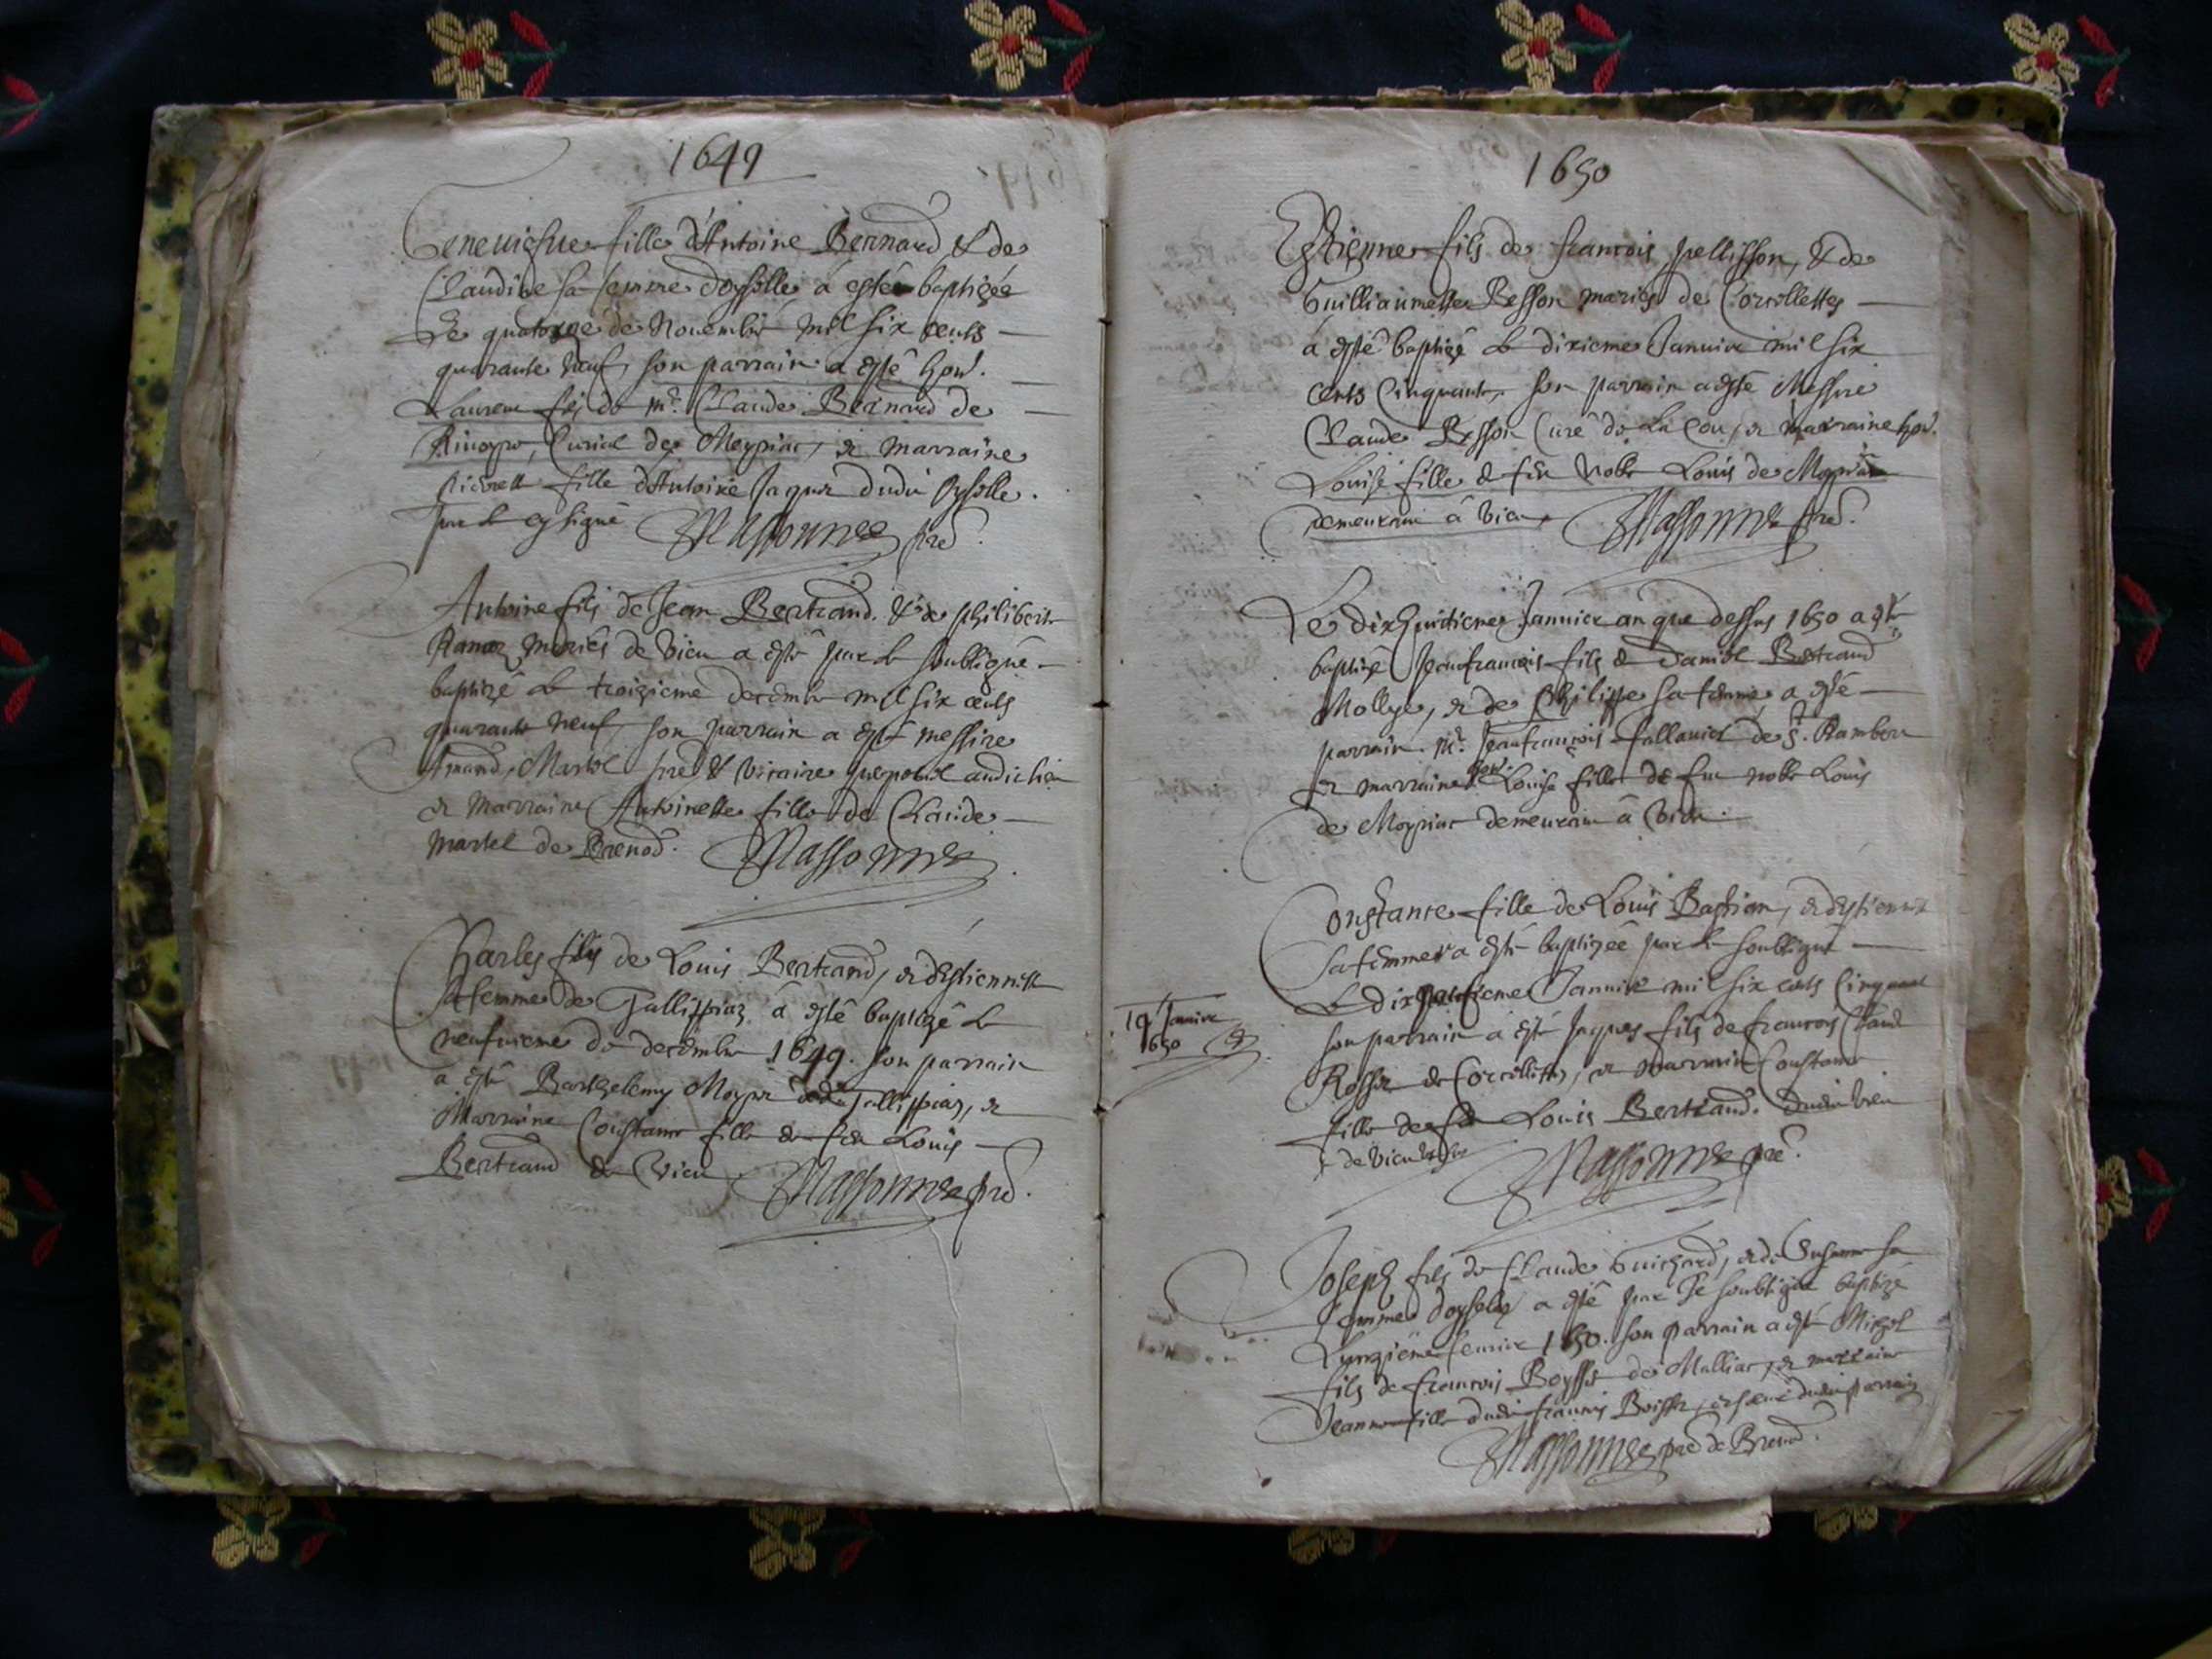 1649
Geneuiefue fille d'Antoine Bernard & de
Claudine sa femme d'oysselle a esté baptizée
Le quatorze de Nouembre mil six cents
quarante neuf, son parrain a esté hon.
Laurent filz de mr. Claude Bernard de
curial de Meyriac, & marraine
fille d'Antoine Jaquet dudit oyselle.
par le cy signé Massonnet pre.
Antoine filz de Jean Bertrand. & de philiberte
mariés de Vieu a esté par le soubsigné
baptizé le troizieme decembre mil six cents
quarante neuf, son parrain a esté messire
Martel pre & vicaire audict lieu
& marraine Anthoinette fille de Claude
Martel de Brenod. Massonnet
Charles filz de Louis Bertrand, & d'estiennette
sa femme de Tallissiaz a esté baptizé le
neufuieme de decembre 1649. son parrain
a esté Barthelemy Moyne dudit Tallissiaz, &
Marraine Constance fille de feu Louis
Bertrand de Vieu Massonnet pre.
1650
Estienne filz de francois pellisson, & de
Guilliaumette Besson mariés de Corcellettes
a esté baptizé le dixieme Januier mil six
cents cinquante, son parrain a esté Messire
Claude Besson Curé de La Cou, & marraine hon.
Louise fille de feu Noble Louis de Moyriac
demeurant a Vieu, Massonnet pre.
Le dixhuitieme Januier an que dessus 1650 a esté
baptizé Jeanfrancois filz de Daniel Bertrand
Mollye, & de philippe sa femme, a esté
parrain mr. Jeanfrancois Tallauict de St. Rambert
& marraine hon. Louise fille de feu noble Louis
de Moyriac demeurant a Vieu.
Constance fille de Louis Bastian, & d'estiennette
sa femme a esté baptizée par le soubsigné
le Januier mil six cents cinquante
19 Januier
1650
son parrain a esté Jaques filz de francois Claude
de Corcellettes, & marraine Constance
fille de feu Louis Bertrand. dudit Vieu
de Vieu Massonnet pre.
Joseph filz de Claude Guichard, & de Susanne sa
femme d'oysselle a esté par le soubsigné baptizé
L'unzieme feurier 1650. son parrain a esté Michel
filz de francois Boysset de Malliac, & marraine
Jeanne fille dudit francois Boisset, & soeur dudit parrain
Massonnet pre de Brenod.